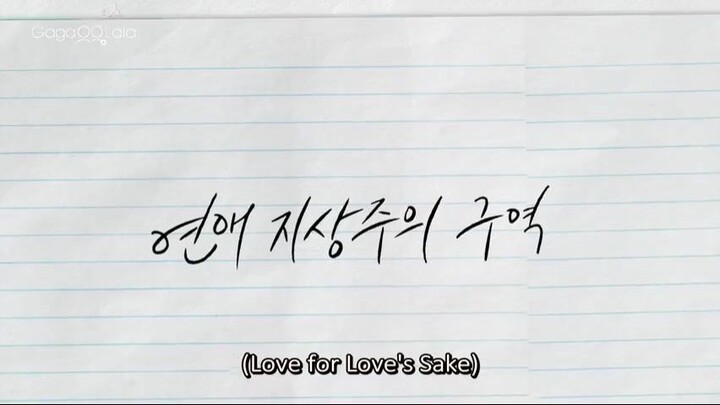 GagaOOLala
연애 지상주의 구역
(Love for Love's Sake)